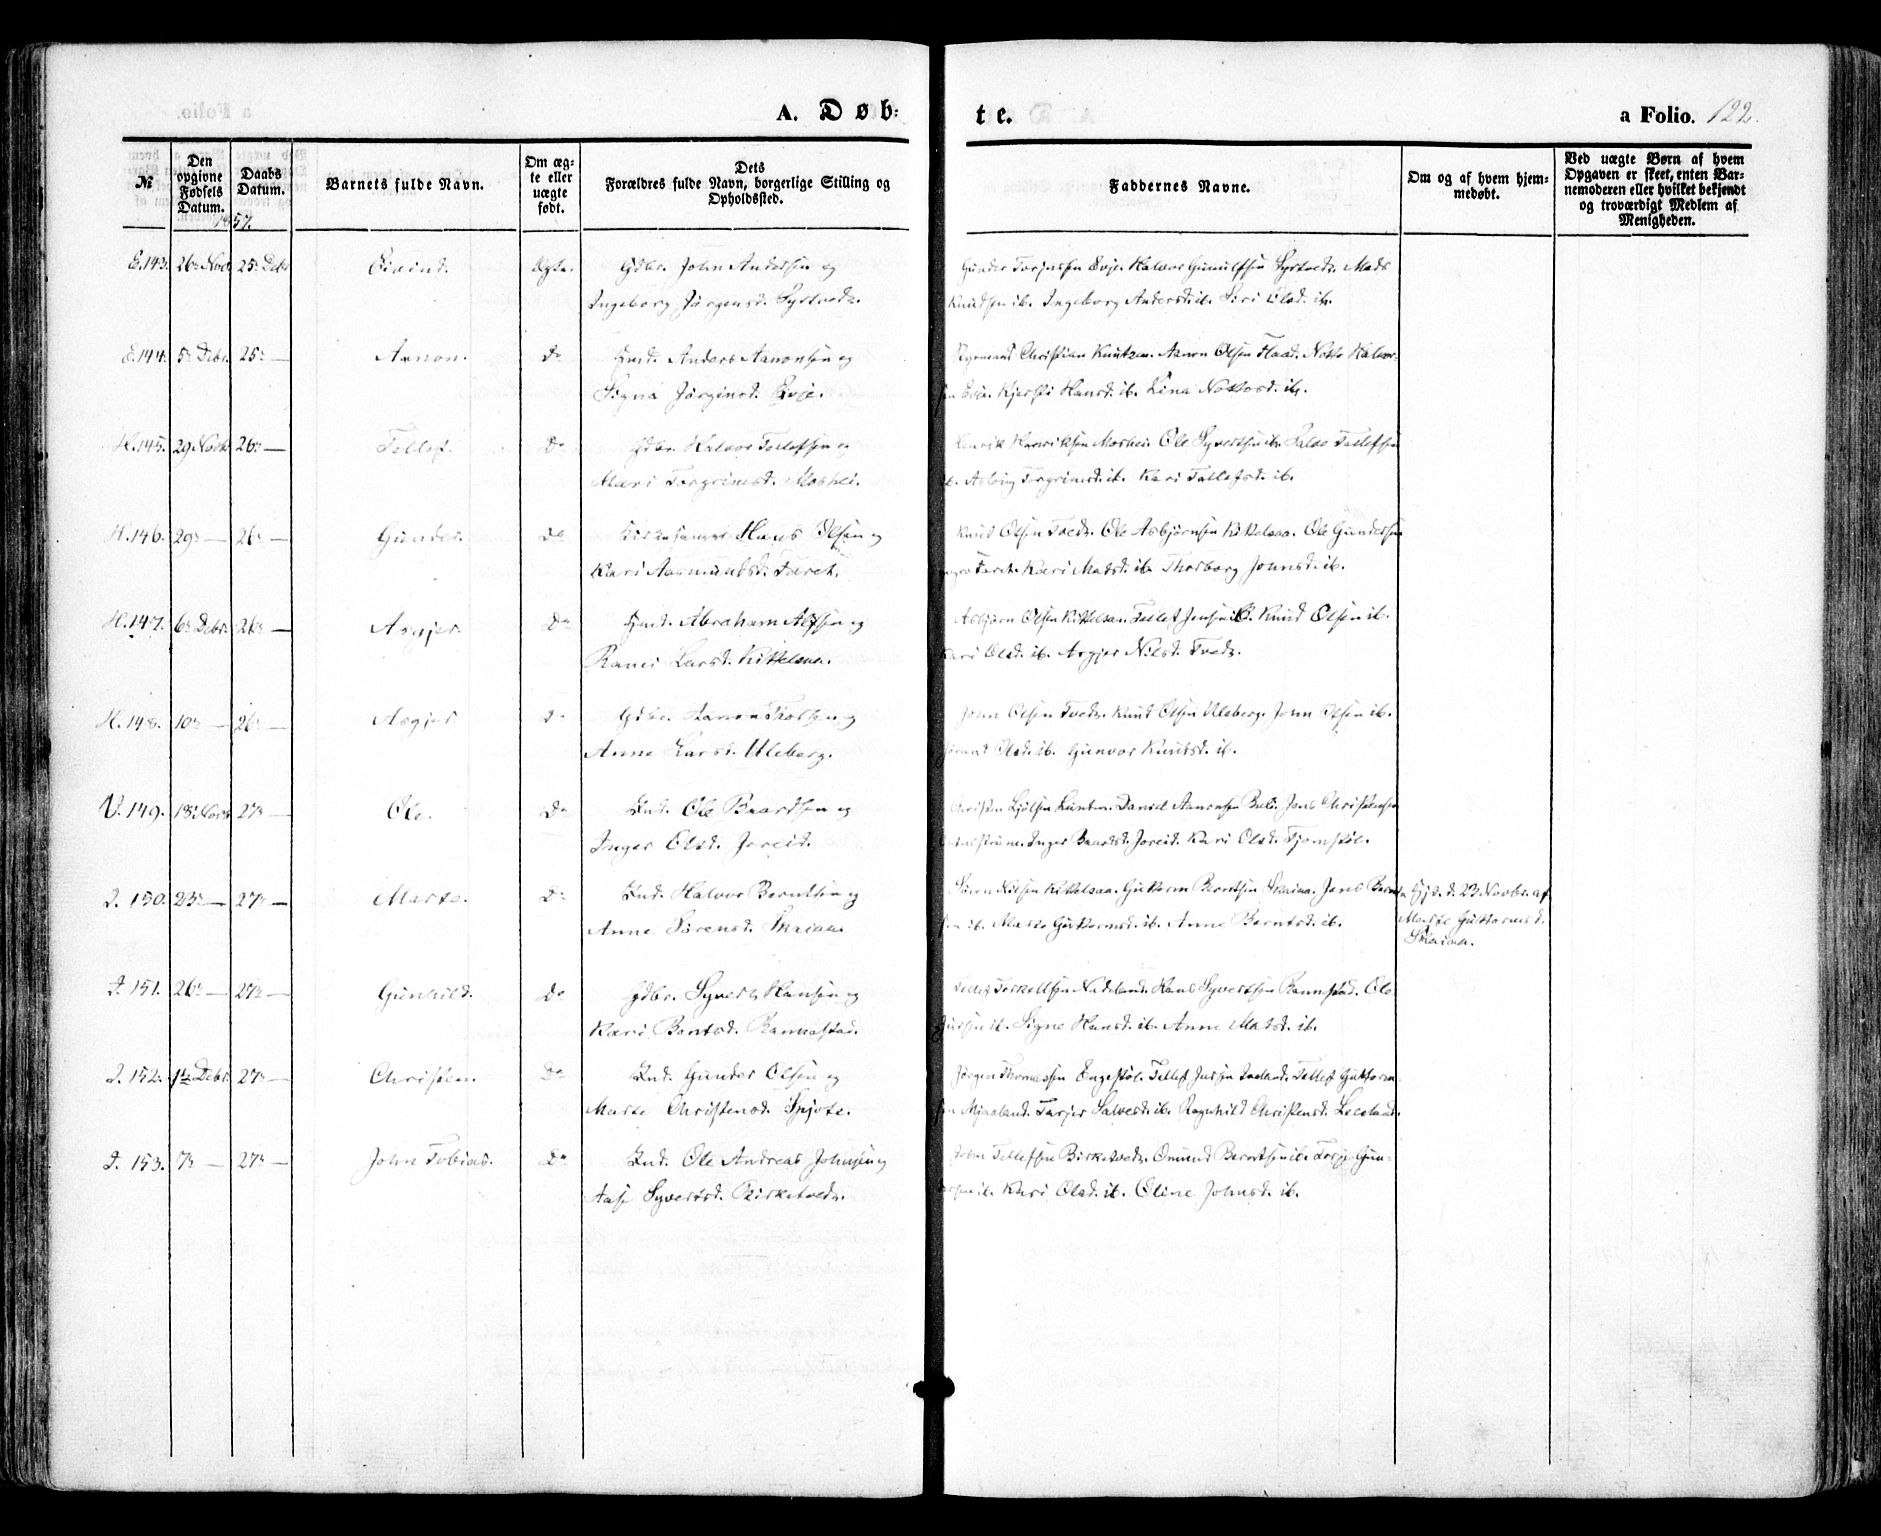 A. Døb:
te.
a Folio. 122.
№
Den opgivne Fødsels Datum.
Daabs Datum.
Barnets fulde Navn.
Om ægte eller uægte født.
Dets Forældres fulde Navn, borgerlige Stilling og Opholdssted.
Faddernes Navne.
Om og af hvem hjemmedøbt.
Ved uægte Børn af hvem Opgaven er skeet, enten Barnemoderen eller hvilket bekjendt og troværdigt Medlem af Menigheden.
1857.
E. 143. 26de Novb 25de Debr Eivind. Ægte. Gdbr. John Andersen og
Ingeborg Jørgensd. Syrtvedt.
Gunder Torjussen Evje. Halvor Gunulfsen Syrtvedt. Mads
Knudsen ib. Ingeborg Andersd. ib. Siri Olsd. ib.
E. 144. 5de Debr. 25de — Aanon. Do Hmd. Anders Aanonsen og
Signe Jørgensd. Evje.
Christian Knutzen. Aanon Olsen Flaad. Notto Halvor-
sen Evje. Kjersti Hansd. ib. Lina Nottosd. ib.
H. 145. 29 Novb. 26de — Tellef. Do Gdbr. Halvor Tellefsen og
Mari Torgrimsd. Moshei.
Henrik Henriksen Moshei. Ole Syvertsen ib. Tellefsen
ib. Aslaug Torgrimsd. ib. Kari Tellefsd. ib.
H. 146. 29de — 26de — Gunder. Do Kirkesanger Hans Olsen og
Kari Aasmundsd. Faret.
Knud Olsen Tvedt. Ole Asbjørnsen Kittelsaa. Ole Gundersen
Faret. Kari Matsd. ib. Thorborg Johnsd. ib.
H. 147. 6de Debr. 26de — Asgjer. Do Hmd. Abraham Alfsen og
Ranei Larsd. Kittelsaa.
Asbjørn Olsen Kittelsaa. Tellef Jensen ib. Knud Olsen ib.
Kari Olsd. ib. Asgjer Nilsd. Tvedt.
H. 148. 10de — 26de — Asgjer. Do Gdbr. Aanon Tholsen og
Anne Larsd. Uleberg.
John Olsen Tvedt. Knud Olsen Uleberg. John Olsen ib.
Olsd. ib. Gunvor Knutsd. ib.
V. 149. 18de Novb 27de — Ole. Do Ind. Ole Baardsen og
Inger Olsd. Joreid.
Daniel Aanonsen Jens Christensen
Inger Baardsd. Joreid. Kari Olsd. Tjomstøl.
I. 150. 23de — 27de — Marte. Do Ind. Halvor Berntsen og
Anne Sørensd. Skaiaa.
Søren Nilsen Kittelsaa. Guttorm Berntsen Skaiaa. Jens Bernt-
sen ib. Marte Guttormsd. ib. Anne Berntsd. ib.
Hjd. d. 23 Novbr. af
Marte Guttormsd.
Skaiaa.
I. 151. 26de — 27de — Gunhild. Do Gdbr. Syvert Hansen og
Kari Berntsd. Rannestad.
Tellef Terkellsen Nateland. Hans Syvertsen Rannestad. Ole
ib. Signe Hansd. ib. Anne Matsd. ib.
I. 152. 1ste Debr. 27de — Christen. Do Ind. Gunder Olsen og
Marte Christensd. Spjote.
Jørgen Thomassen Engestøl. Tellef Tellef Guttorm-
sen Mjaaland. Torjer Salvesd. ib. Ragnhild Christensd.
I. 153. 7de — 27de — John Tobias. Do Ind. Ole Andreas Johnsen og
Aase Syvertsd. Birketvedt.
John Tellefsen Birketvedt. Omund Berntsen ib. Torje Gun-
dersen ib. Kari Olsd. ib. Oline Johnsd. ib.